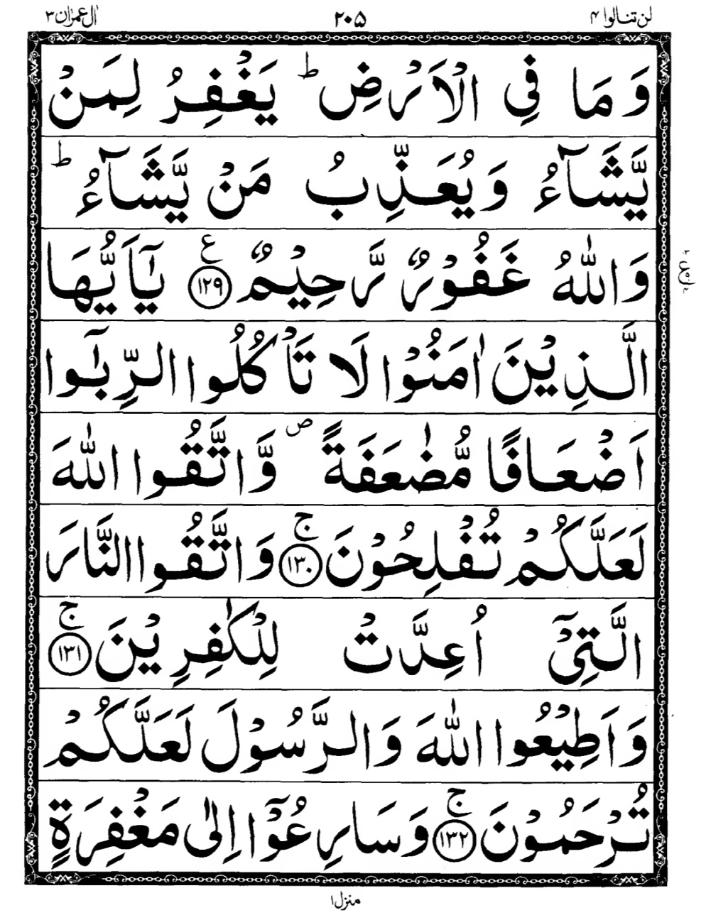 لن تنالوا ۴ ۲۰۵ اٰل عمرٰن ۳
وَمَا فِي الْاَرْضِ ؕ يَغْفِرُ لِمَنْ
يَّشَآءُ وَيُعَذِّبُ مَنْ يَّشَآءُ ؕ
وَاللّٰهُ غَفُوْرٌ رَّحِيْمٌ ﴿۱۲۹﴾ ع يٰۤاَيُّهَا
الَّذِيْنَ اٰمَنُوْا لَا تَاْكُلُوا الرِّبٰۤوا
اَضْعَافًا مُّضٰعَفَةً ۖ وَّاتَّقُوا اللّٰهَ
لَعَلَّكُمْ تُفْلِحُوْنَ ۚ ﴿۱۳۰﴾ وَاتَّقُوا النَّارَ
الَّتِيْۤ اُعِدَّتْ لِلْكٰفِرِيْنَ ۚ ﴿۱۳۱﴾
وَاَطِيْعُوا اللّٰهَ وَالرَّسُوْلَ لَعَلَّكُمْ
تُرْحَمُوْنَ ۚ ﴿۱۳۲﴾ وَسَارِعُوْۤا اِلٰى مَغْفِرَةٍ
منزل ۱